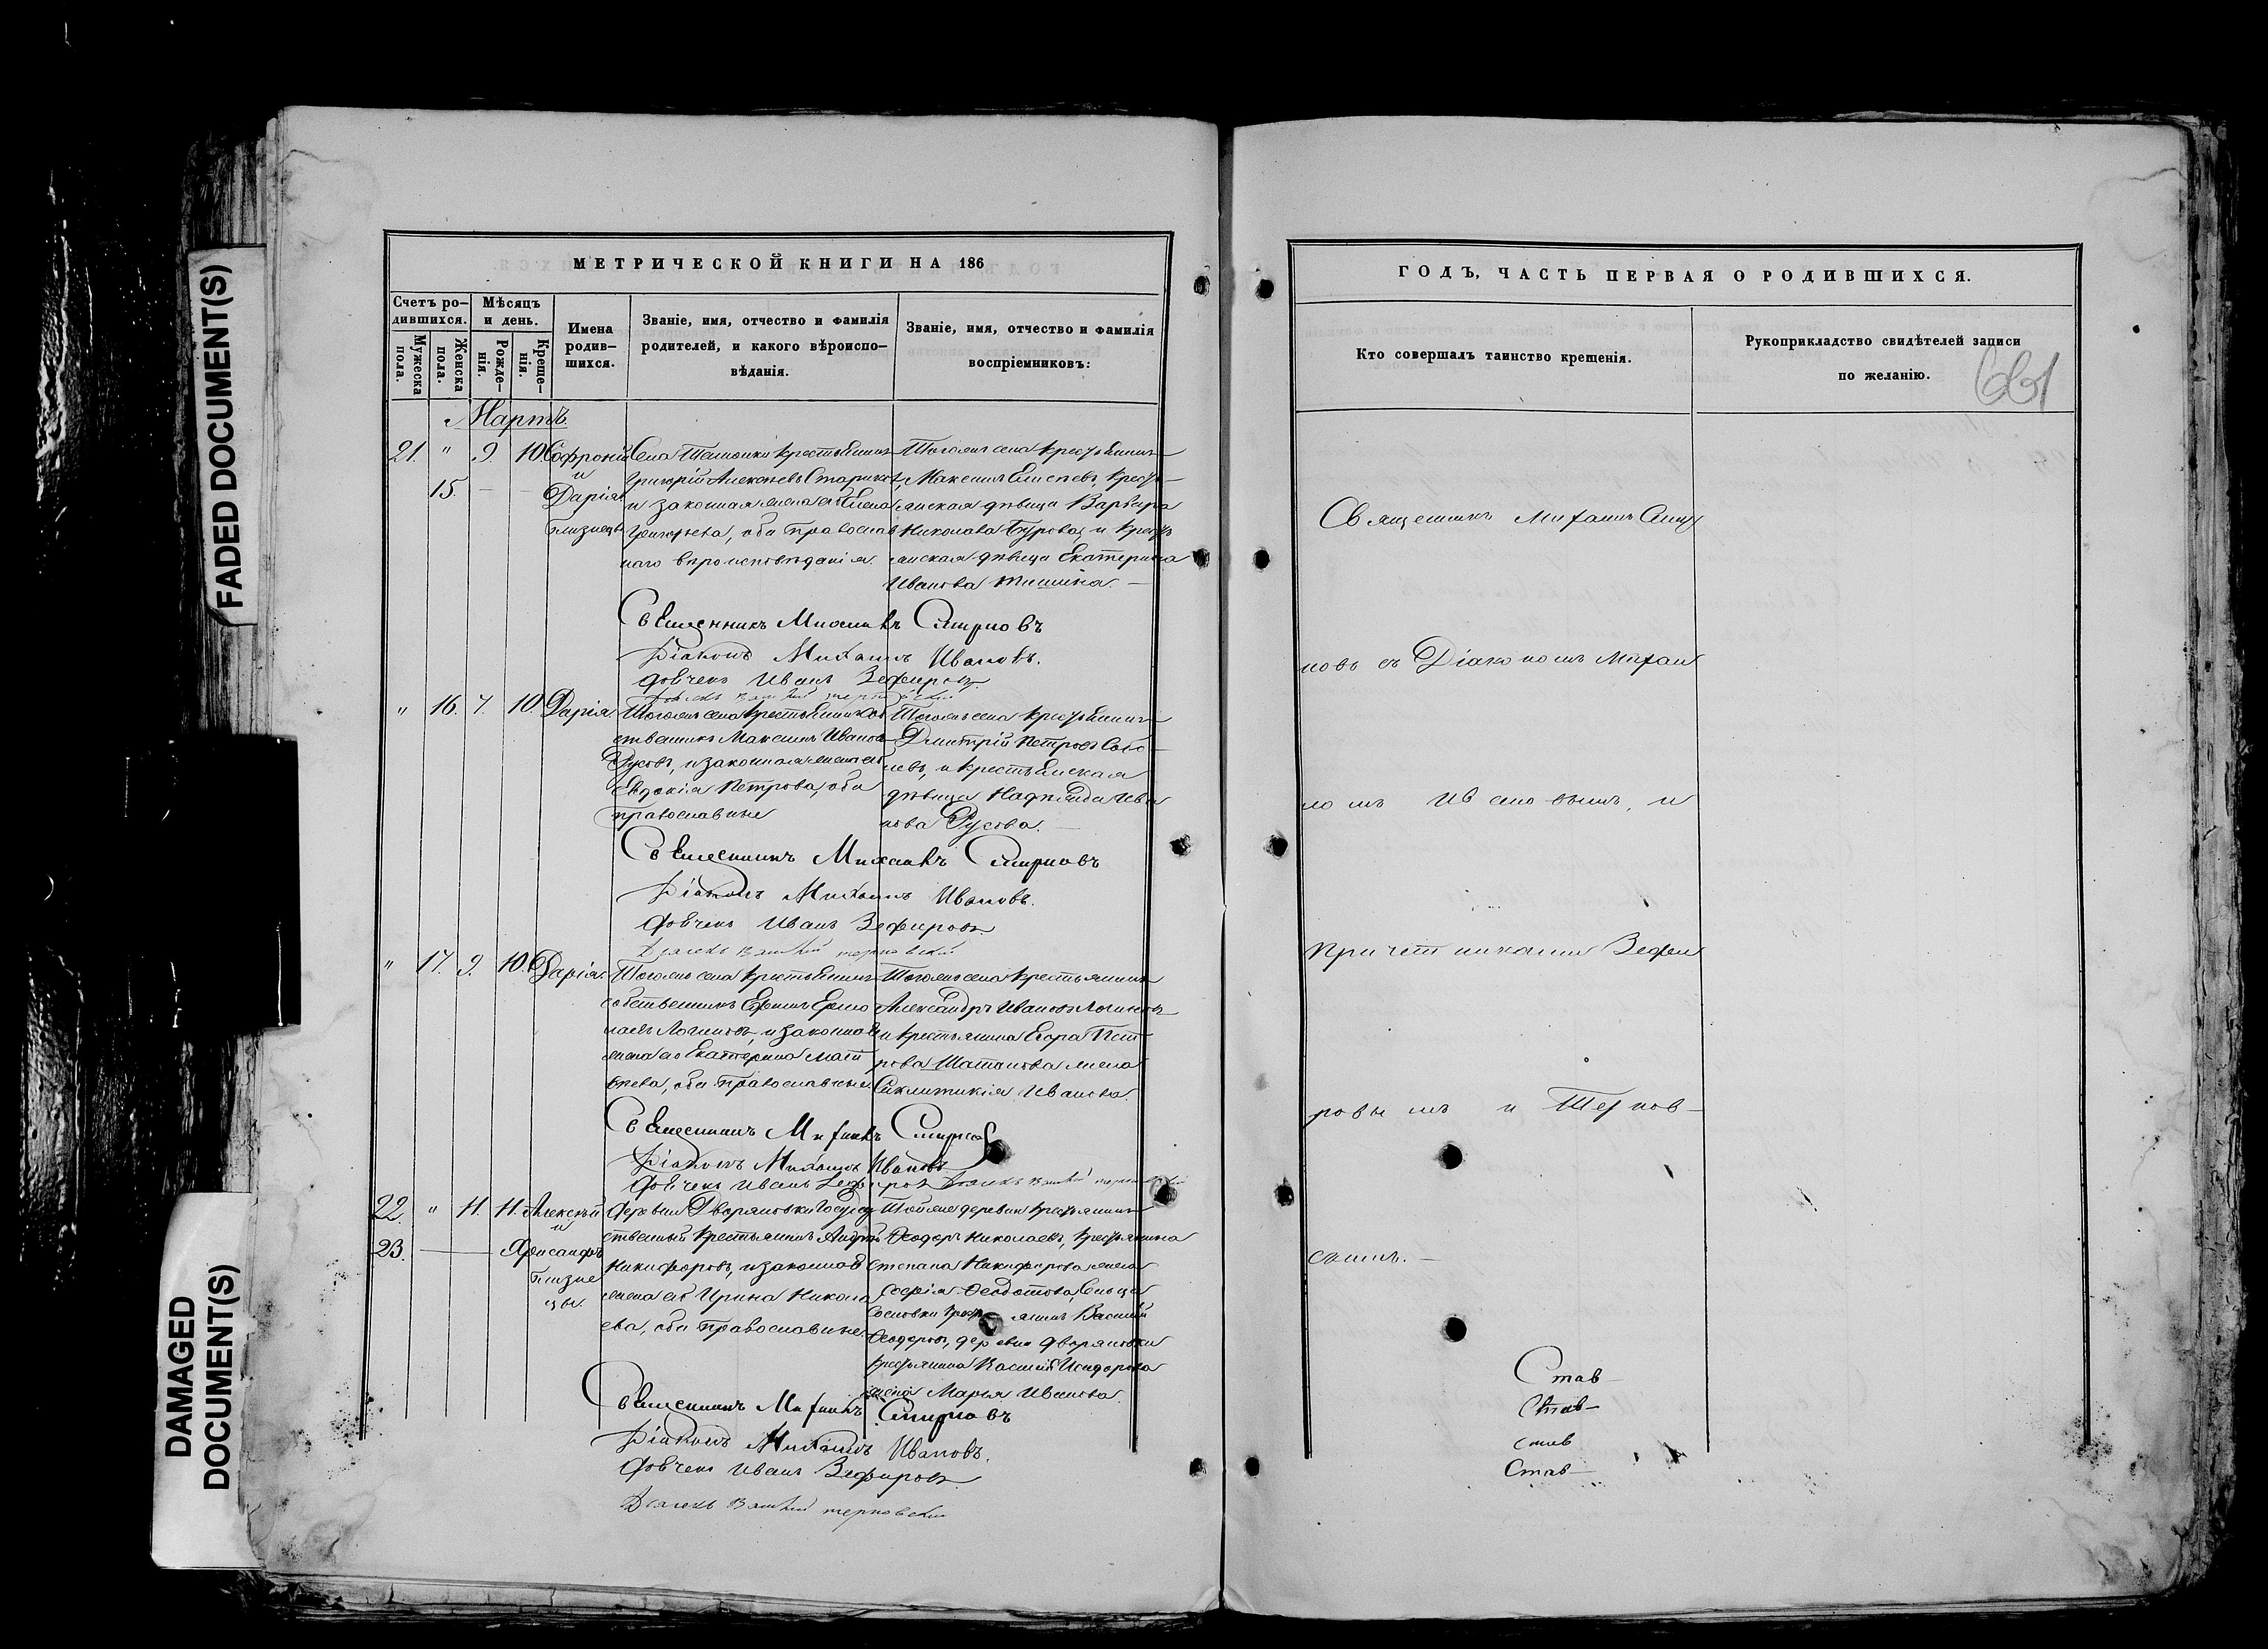 FADED DOCUMENT(S)
DAMAGED
DOCUMENT(S)
МЕТРИЧЕСКОЙ КНИГИ НА 186
Счетъ ро-
дившихся.
Мужеска
пола.
Женска
пола.
Мѣсяцъ
и день.
Рожде-
нія.
Креще-
нія.
Имена
родив-
шихся.
Званіе, имя, отчество и фамилія
родителей, и какого вѣроиспо-
вѣданія.
Званіе, имя, отчество и фамилія
воспріемниковъ:
Мартъ.
21. " 9. 10. Софроній
и
15. — — Дарія
близнецы
Села крестьянинъ
Григорій Алексѣевъ Стариковъ
и законная жена его Елена
Григорьева, оба православ
наго вѣроисповѣданія.
Тогожъ села крестьянинъ
Максимъ Елисѣевъ, кресть-
янская дѣвица Варвара
Николаева Бурова, и кресть
янская дѣвица Екатерина
Иванова Тишина. —
Священникъ Михаилъ Смирновъ
Діаконъ Михаилъ Ивановъ.
Дьячекъ Иванъ Зефировъ.
" 16. 7. 10. Дарія.
Тогожъ села крестьянинъ соб
ственникъ Максимъ Ивановъ
Русовъ, и законная жена его
Евдокія Петрова, оба
православные
Тогожъ села крестьянинъ
Дмитрій Петровъ
и крестьянская
дѣвица Надежда Ива
нова Русова. —
Священникъ Михаилъ Смирновъ
Діаконъ Михаилъ Ивановъ.
Дьячекъ Иванъ Зефировъ.
Дьячекъ Василій терновскій
" 17. 9. 10. Дарія.
Тогожъ села крестьянинъ
собственникъ Ефимъ Ермо
лаевъ Логиновъ, и законная
жена его Екатерина Матв
ѣева, оба православные
Тогожъ села крестьянинъ
Александръ Ивановъ Логиновъ
и крестьянина Егора Пет
рова Шатилова жена
Синклитикія Иванова.
Священникъ Михаилъ Смирновъ
Діаконъ Михаилъ Ивановъ
Дьячекъ Иванъ Зефировъ Дьячекъ Василій терновскій
22. " 11. 11. Алексѣй
и
23. — — Александръ
близне
цы.
Деревни Дворяновки Государ
ственный крестьянинъ Андрей
Никифоровъ, и законная
жена его Ирина Никола
ева, оба православные.
Тойже деревни крестьянинъ
Ѳеодоръ Николаевъ, крестьянина
Степана Никифорова жена
Софія Ѳеодотова, сельца
Сосновки крестьянинъ Василій
Ѳеодоровъ, деревни Дворяновки
крестьянина Василія Исидорова
жена Марья Иванова.
Священникъ Михаилъ Смирновъ
Діаконъ Михаилъ Ивановъ.
Дьячекъ Иванъ Зефировъ.
Дьячекъ Василій терновскій
ГОДЪ, ЧАСТЬ ПЕРВАЯ О РОДИВШИХСЯ.
Кто совершалъ таинство крещенія.
Рукоприкладство свидѣтелей записи
по желанію.
661
Священникъ Михаилъ Смир
новъ съ Діакономъ Михаи
ломъ Ивановымъ, и
Причетниками Зефи
ровымъ и Тернов-
скимъ. —
Став-
Став-
став
Став-